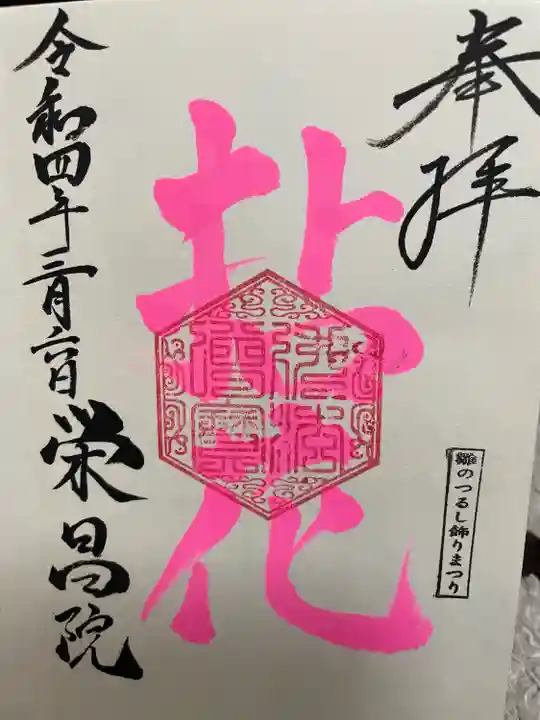 奉拝
桃花
雛のつるし飾りまつり
令和四年三月六日 榮昌院